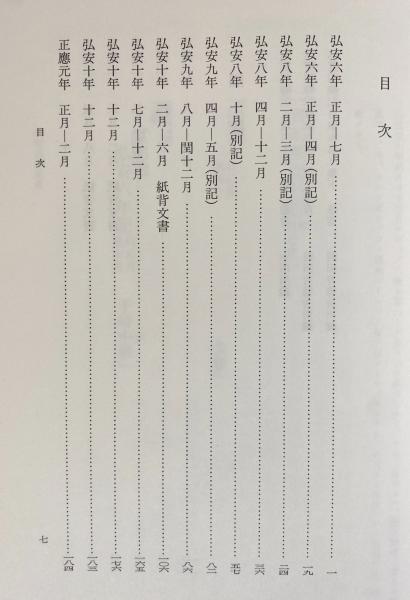 目次
弘安六年 正月―七月……一
弘安六年 正月―四月(別記)……一九
弘安八年 二月―三月(別記)……二四
弘安八年 四月―十二月……三六
弘安八年 十月(別記)……五七
弘安九年 四月―五月(別記)……八二
弘安九年 八月―閏十二月……八六
弘安十年 二月―六月 紙背文書……一〇六
弘安十年 七月―十二月……一六五
弘安十年 十二月……一七六
弘安十年 十二月……一八三
正應元年 正月―二月……一八四
目次
七